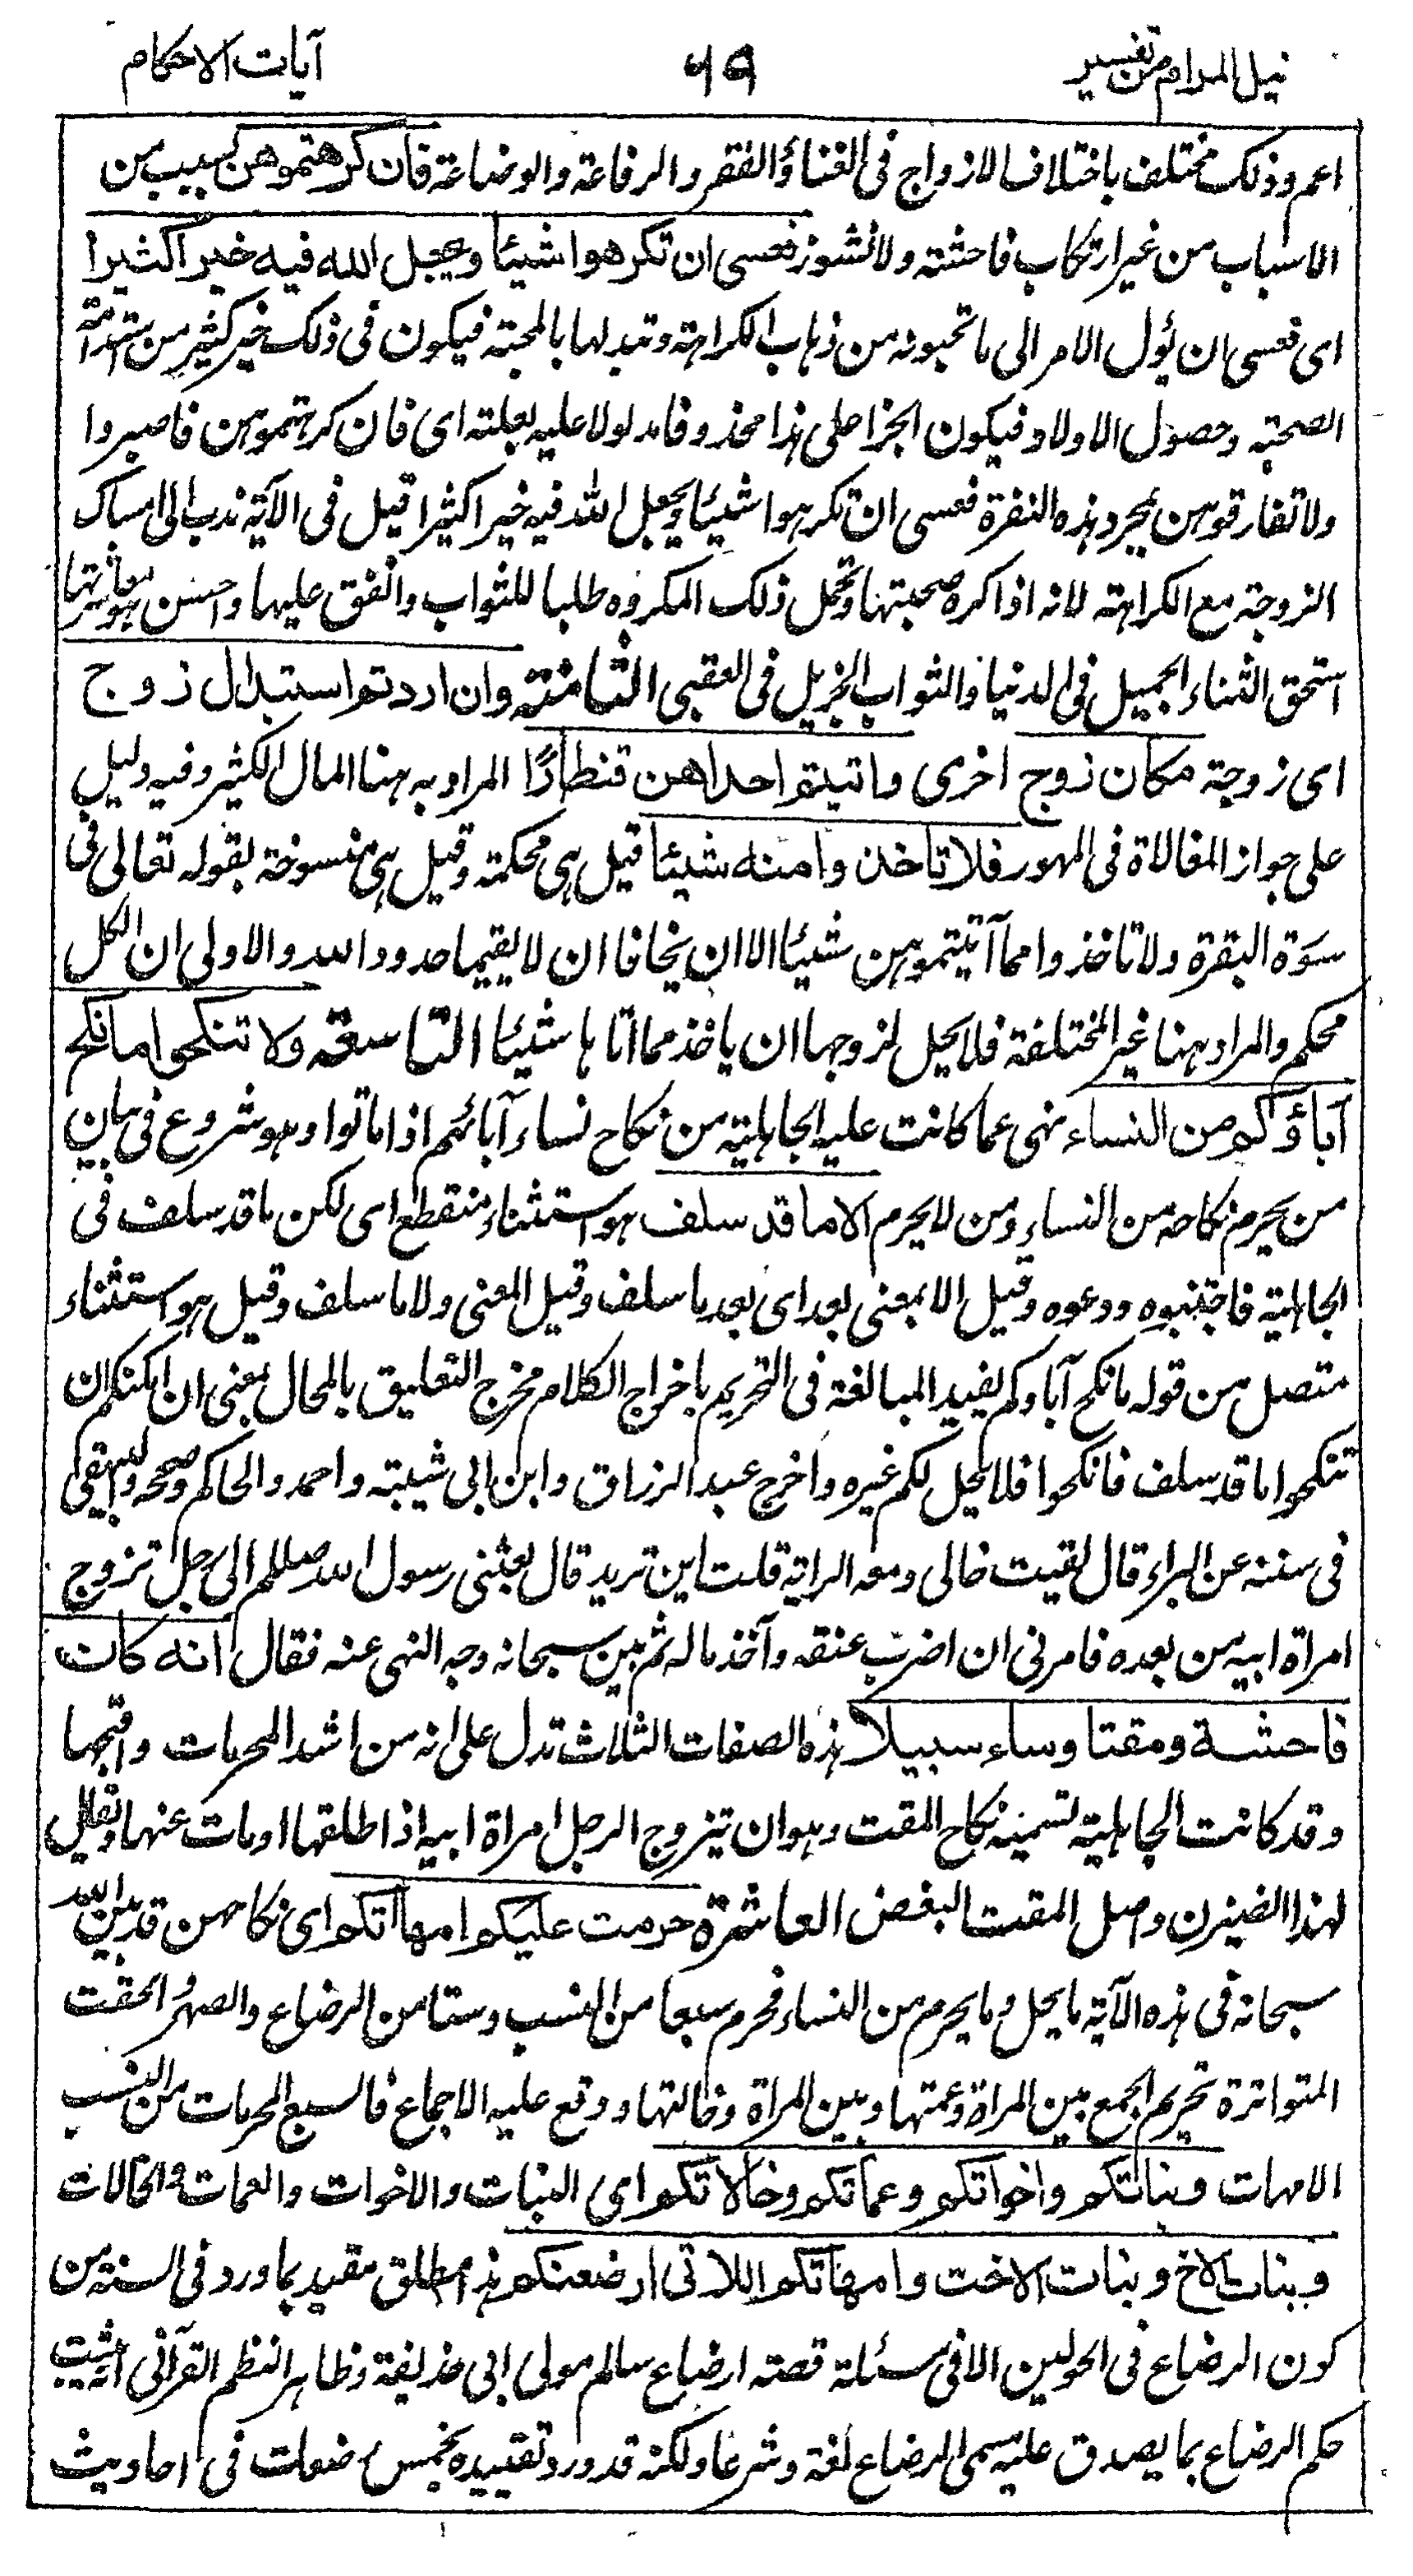 نيل المرام من تفسير ٦٩ آيات الاحكام
اعم وذلك مختلف باختلاف الازواج فى الغناء والفقر والرفاعة والوضاعة فان كرهتموهن بسبب من
الاسباب من غير ارتكاب فاحشة ولا نشوز فعسى ان تكرهوا شيئا ويجعل الله فيه خيرا كثيرا
اى فعسى ان يؤل الامر الى ما تحبونه من ذهاب الكراهة وتبدلها بالمحبة فيكون فى ذلك خير كثير من استدامة
الصحبة وحصول الاولاد فيكون الجزاء على هذا محذوفا مدلولا عليه بعلته اى فان كرهتموهن فاصبروا
ولا تفارقوهن بمجرد هذه النفرة فعسى ان تكرهوا شيئا ويجعل الله فيه خيرا كثيرا قيل فى الآية ندب الى امساك
الزوجة مع الكراهة لانه اذا كره صحبتها وتحمل ذلك المكروه طلبا للثواب وانفق عليها واحسن هو معاشرتها
استحق الثناء الجميل فى الدنيا والثواب الجزيل فى العقبى الثامنة وان اردتم استبدال زوج
اى زوجة مكان زوج اخرى واتيتم احداهن قنطارًا المراد به هنا المال الكثير وفيه دليل
على جواز المغالاة فى المهور فلا تاخذوا منه شيئا قيل هى محكمة وقيل هى منسوخة بقوله تعالى فى
سورة البقرة ولا تاخذوا مما آتيتموهن شيئا الا ان يخافا ان لا يقيما حدود الله والاولى ان الكل
محكم والمراد هنا غير المختلفة فلا يحل لزوجها ان ياخذ مما اتاها شيئا التاسعة ولا تنكحوا ما نكح
آباؤكم من النساء نهى عما كانت عليه الجاهلية من نكاح نساء آبائهم اذا ماتوا وهو شروع فى بيان
من يحرم نكاحه من النساء ومن لا يحرم الا ما قد سلف هو استثناء منقطع اى لكن ما قد سلف فى
الجاهلية فاجتنبوه ودعوه وقيل الا بمعنى بعد اى بعد ما سلف وقيل المعنى ولا ما سلف وقيل هو استثناء
متصل من قوله ما نكح آباوكم يفيد المبالغة فى التحريم باخراج الكلام مخرج التعليق بالمحال بمعنى ان امكنكم ان
تنكحوا ما قد سلف فانكحوا فلا يحل لكم غيره واخرج عبد الرزاق وابن ابى شيبة واحمد والحاكم وصححه والبيهقى
فى سننه عن البراء قال لقيت خالى ومعه الراية قلت اين تريد قال بعثنى رسول الله صللم الى رجل تزوج
امراة ابيه من بعده فامرنى ان اضرب عنقه وآخذ ماله ثم بين سبحانه وجه النهى عنه فقال انه كان
فاحشة ومقتا وساء سبيلا هذه الصفات الثلاث تدل على انه من اشد المحرمات واقبحها
وقد كانت الجاهلية تسميه نكاح المقت وهو ان يتزوج الرجل امراة ابيه اذا طلقها او مات عنها ويقال
لهذا الضيزن واصل المقت البغض العاشرة حرمت عليكم امهاتكم اى نكاحهن قد بين الله
سبحانه فى هذه الآية ما يحل وما يحرم من النساء فحرم سبعا من النسب وستا من الرضاع والصهر والحقت
المتواترة تحريم الجمع بين المراة وعمتها وبين المراة وخالتها ووقع عليه الاجماع فالسبع المحرمات من النسب
الامهات وبناتكم واخواتكم وعماتكم وخالاتكم اى البنات والاخوات والعمات والخالات
وبنات الاخ وبنات الاخت وامهاتكم اللاتى ارضعنكم هذا مطلق مقيد بما ورد فى السنة من
كون الرضاع فى الحولين الا فى مسئلة قصة ارضاع سالم مولى ابى حذيفة وظاهر النظم القرآنى انه يثبت
حكم الرضاع بما يصدق عليه مسمى الرضاع لغة وشرعا ولكنه قد ورد تقييده بخمس رضعات فى احاديث